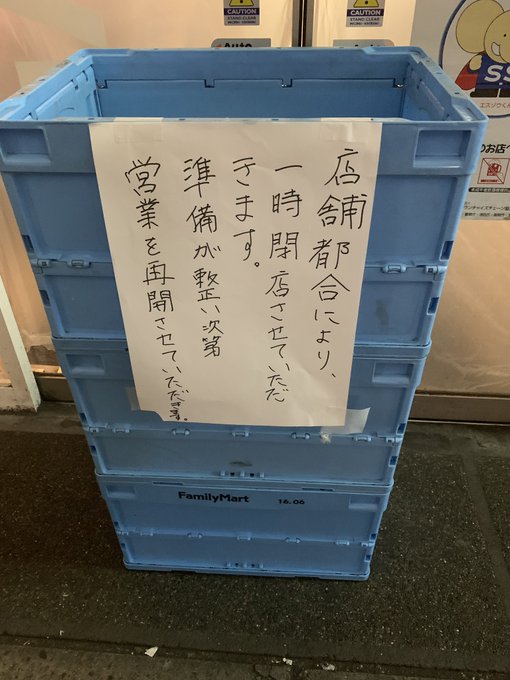 CAUTION
STAND CLEAR
CAUTION
STAND CLEAR
Auto
SS
エスゾウくん
のお店へ
店舗都合により、
一時閉店させていただ
きます。
準備が整い次第
営業を再開させていただきます。
FamilyMart
16.06